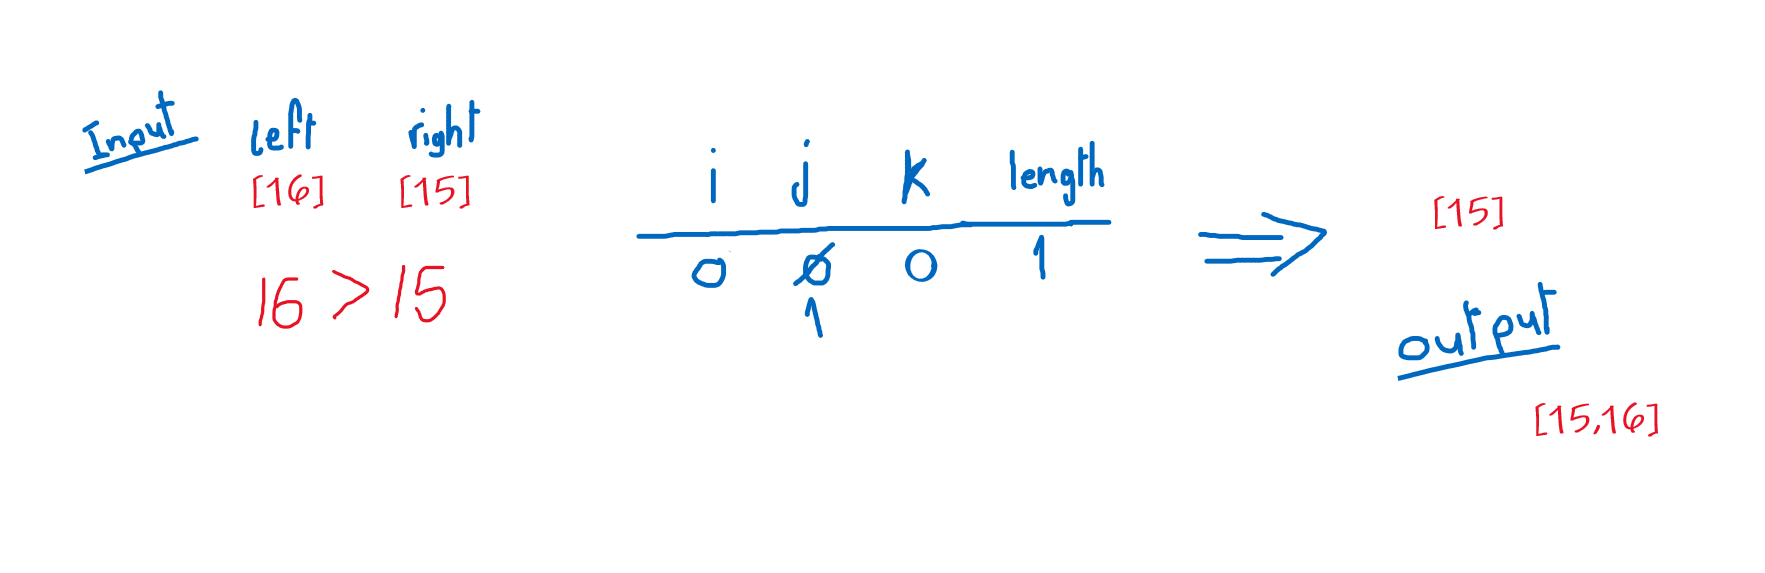 Input left right
[16] [15]
16 > 15
i j k length
0 0 0 1
1
[15]
output
[15,16]